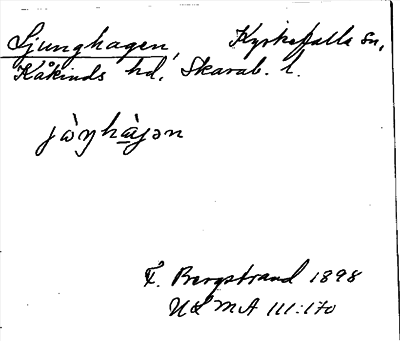 Ljunghagen, Kyrkefalla sn,
Kåkinds hd, Skarab. l.
jὼŋhàjən
F. Bergstrand 1898
ULMA 111:170